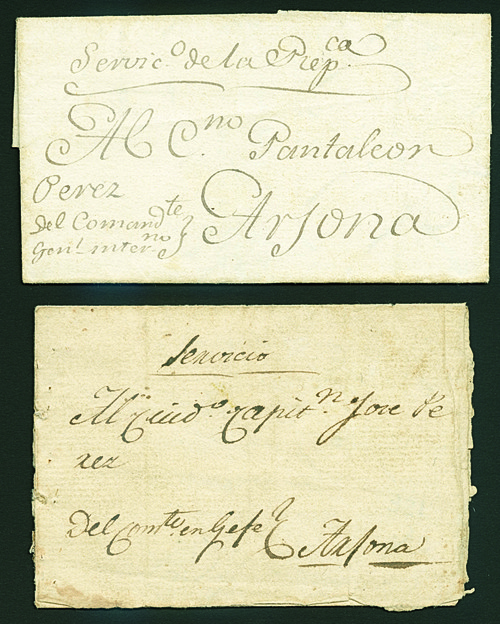 Servic.º de la Rep.ca
Al C.no Pantaleon
Perez
Del Comandte
Genl. interno } Arsona
Servicio
Al Ciudº. Capitn. Jose Pe
rez
Del Comte. en Gefe } Arsona